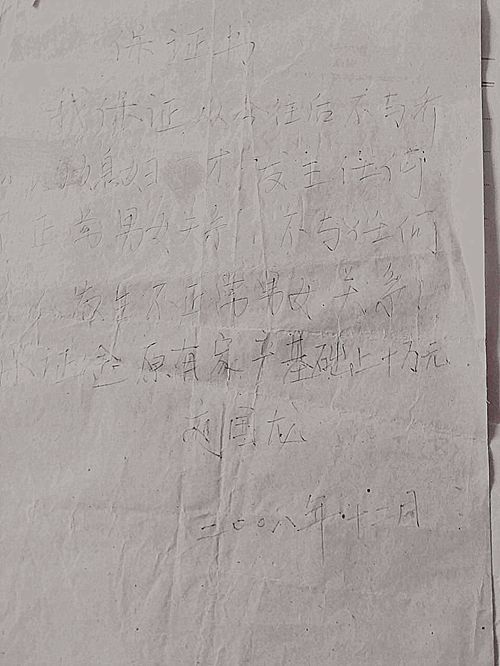 保证书
我保证从今往后不与乔
媳妇 才 发生任何
不正常男女关系, 不与任何
发生不正常男女关系,
保证在原有家产基础上十万元
赵国龙
二〇〇八年十二月